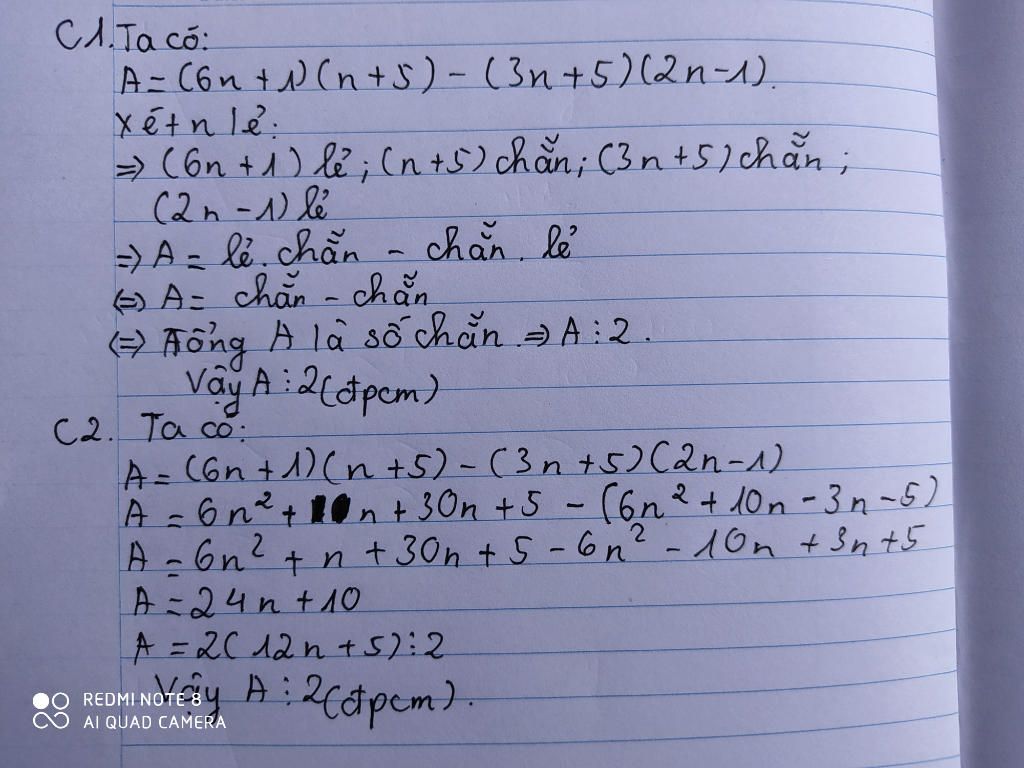 C1. Ta có:
A = (6n + 1)(n + 5) - (3n + 5)(2n - 1).
Xét n lẻ:
⇒ (6n + 1) lẻ; (n + 5) chẵn; (3n + 5) chẵn;
(2n - 1) lẻ
⇒ A = lẻ. chẵn - chẵn. lẻ
⇔ A = chẵn - chẵn
⇔ Tổng A là số chẵn. ⇒ A ⋮ 2.
Vậy A ⋮ 2 (đpcm)
C2. Ta có:
A = (6n + 1)(n + 5) - (3n + 5)(2n - 1)
A = 6n² + n + 30n + 5 - (6n² + 10n - 3n - 5)
A = 6n² + n + 30n + 5 - 6n² - 10n + 3n + 5
A = 24n + 10
A = 2(12n + 5) ⋮ 2
Vậy A ⋮ 2 (đpcm).
REDMI NOTE 8
AI QUAD CAMERA